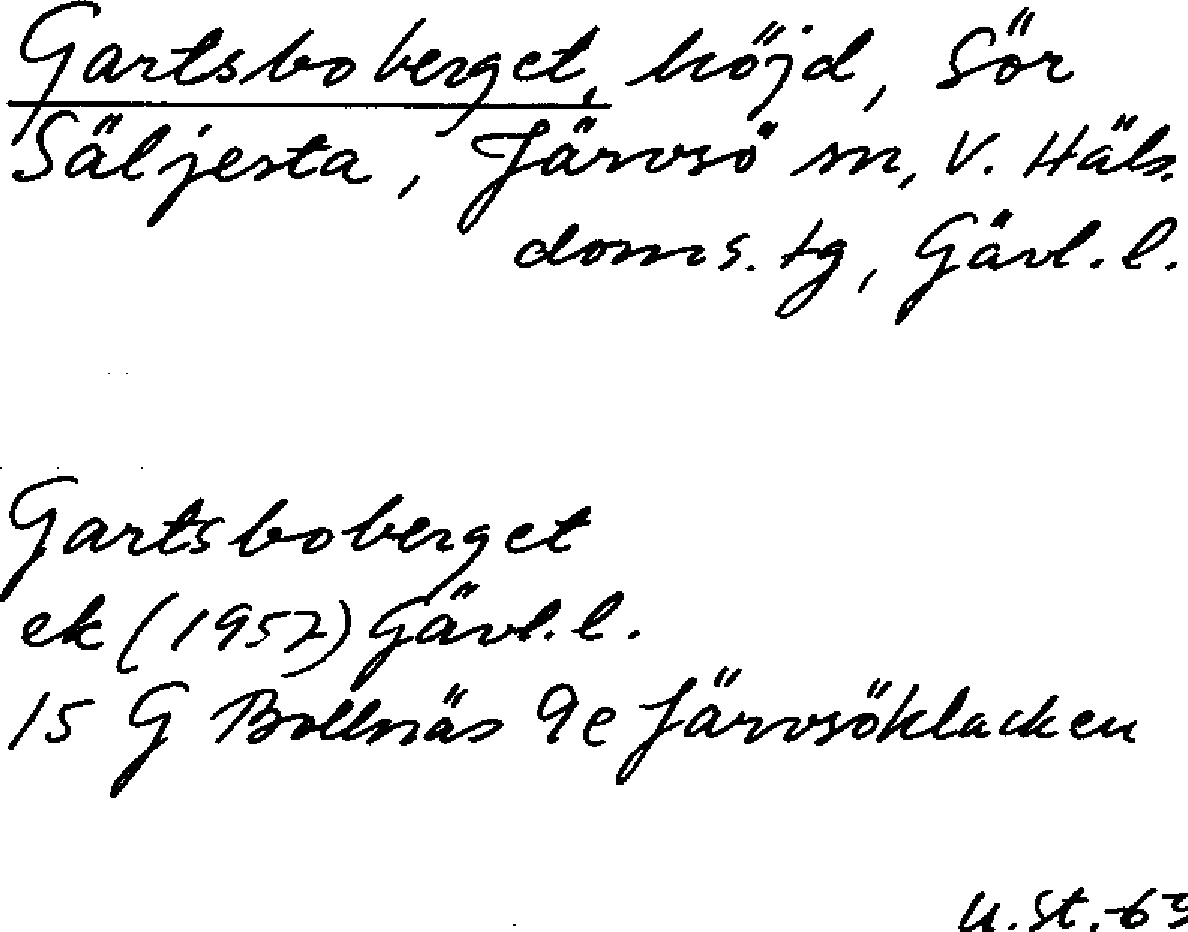 Gartsboberget, höjd, Sör
Säljesta, Järvsö sn, V. Häls.
doms. tg, Gävl. l.
Gartsboberget
ek (1957) Gävl. l.
15 G Bollnäs 9e Järvsöklacken
U. St. -63